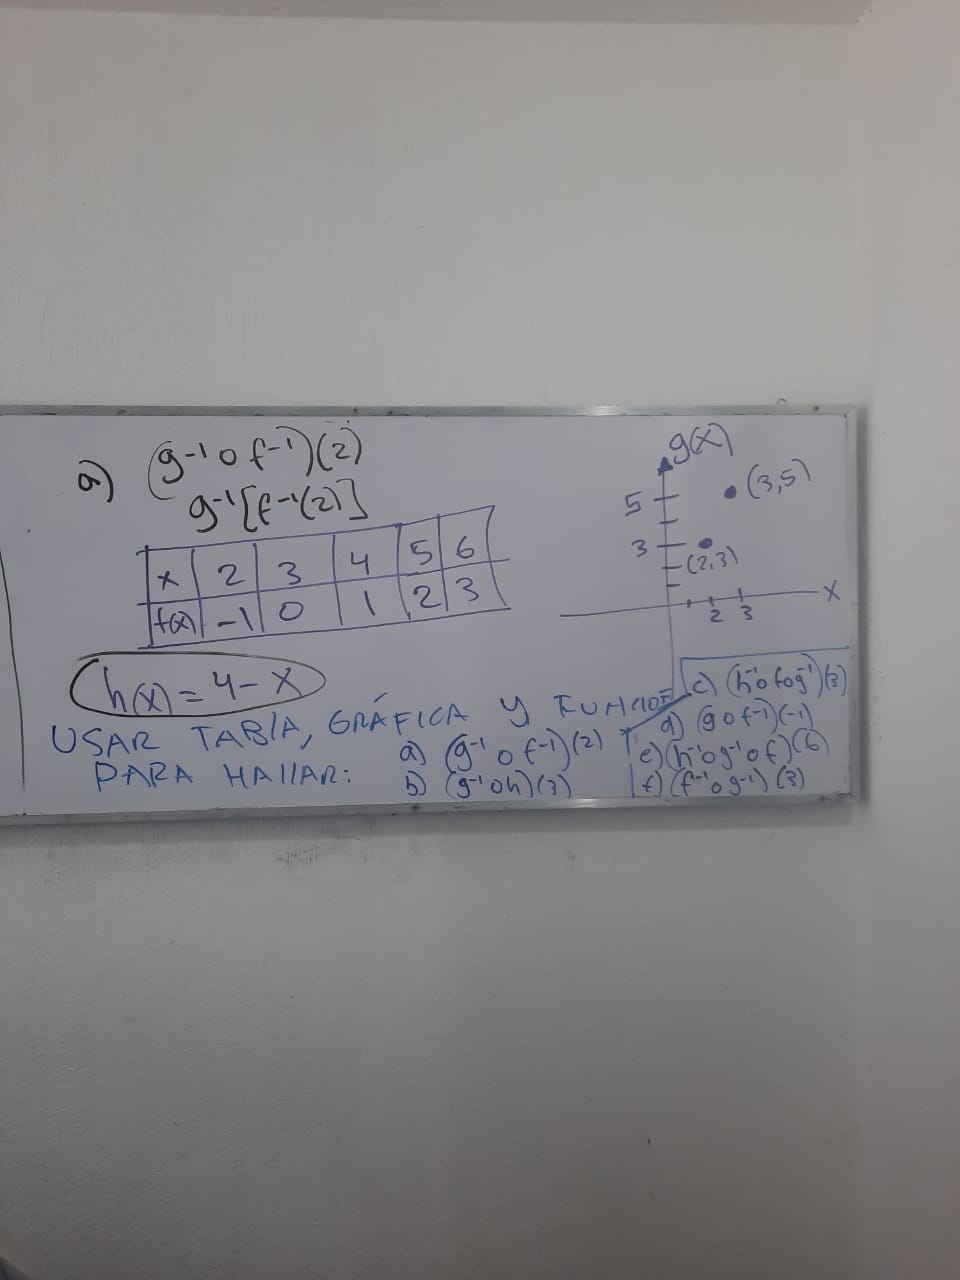 a) (g⁻¹ o f⁻¹)(2)
g⁻¹[f⁻¹(2)]
x 2 3 4 5 6
f(x) -1 0 1 2 3
h(x) = 4 - x
g(x)
5 (3,5)
3 (2,3)
x
2 3
USAR TABLA, GRÁFICA Y FUNCIÓN
PARA HALLAR:
a) (g⁻¹ o f⁻¹)(2)
b) (g⁻¹ o h)(3)
c) (h⁻¹ o f o g⁻¹)(3)
d) (g o f⁻¹)(-1)
e) (h⁻¹ o g⁻¹ o f)(6)
f) (f⁻¹ o g⁻¹)(3)